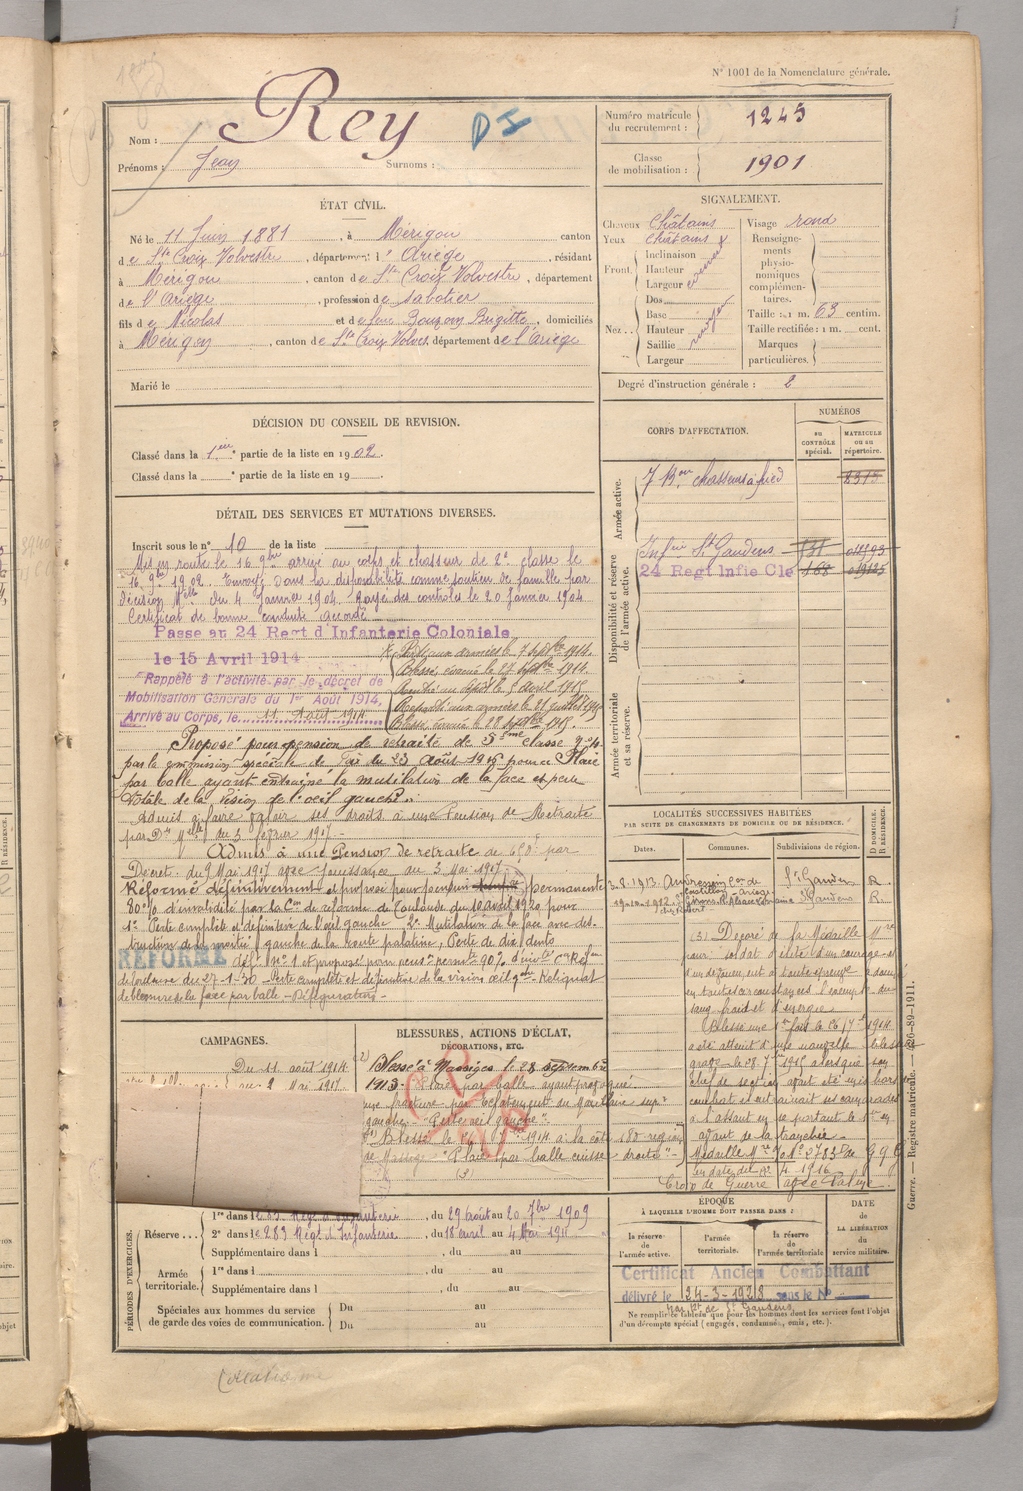 N° 1001 de la Nomenclature générale.
Nom : Rey
DI
Prénoms : Jean Surnoms :
Numéro matricule du recrutement : 1245
Classe de mobilisation : 1901
ÉTAT CIVIL.
Né le 11 Juin 1881, à Mérigon canton
de Ste Croix Volvestre, département d l'Ariège, résidant
à Mérigon, canton de Ste Croix Volvestre, département
de l'Ariège, profession de Sabotier
fils de Nicolas et de feue Bouzom Brigitte, domiciliés
à Mérigon, canton de Ste Croix Volves, département de l'Ariège
Marié le
SIGNALEMENT.
Cheveux châtains
Yeux châtains
Front. Inclinaison
Hauteur
Largeur
Nez. Dos
Base
Hauteur
Saillie
Largeur
Visage rond
Renseignements physionomiques complémentaires.
Taille : 1 m. 63 centim.
Taille rectifiée : 1 m. cent.
Marques particulières.
Degré d'instruction générale : 2
DÉCISION DU CONSEIL DE REVISION.
Classé dans la 1ère partie de la liste en 1902.
Classé dans la ° partie de la liste en 19
DÉTAIL DES SERVICES ET MUTATIONS DIVERSES.
Inscrit sous le n° 10 de la liste
Mis en route le 16 9bre arrivé au corps et chasseur de 2e classe le
16 9bre 1902. Envoyé dans la disponibilité comme soutien de famille par
décision Melle du 4 Janvier 1904. Rayé des contrôles le 20 Janvier 1904
Certificat de bonne conduite accordé
Passe au 24 Regt d'Infanterie Coloniale
le 15 Avril 1914
Rappelé à l'activité par le décret de
Mobilisation Générale du 1er Août 1914,
Arrivé au Corps, le 11 Août 1914
Parti aux armées le 7 septbre 1914.
Blessé, évacué le 27 septbre 1914.
Rentré au dépôt le 5 avril 1915
Reparti aux armées le 21 juillet 1915
Blessé, évacué le 28 septbre 1915.
Proposé pour pension de retraite de 5ème classe
par la commission spéciale de du 23 Août 1916 pour Plaie
par balle ayant entraîné la mutilation de la face et perte
totale de la vision de l'oeil gauche".
Admis à faire valoir ses droits à une Pension de Retraite
par Dn Melle du 3 février 1917.-
Admis à une Pension de retraite de par
Décret du 9 Mai 1917 avec jouissance du 3 Mai 1917
Réformé définitivement et proposé pour pension permanente
80 % d'invalidité par la Con de réforme de Toulouse du 10 avril 1920 pour
1° Perte complète et définitive de l'oeil gauche - 2° Mutilation de la face avec des-
truction de la moitié gauche de la voûte palatine, Perte de dix dents
RÉFORMÉ défve n° 1 et proposé pour pension permte 90% d'invté Con Réfme
de Toulouse du 27-1-30 - Perte complète et définitive de la vision oeil gche - Reliquat
de blessure de la face par balle - Défiguration -
CORPS D'AFFECTATION.
NUMÉROS
au CONTRÔLE spécial.
MATRICULE ou au répertoire.
Armée active.
7 Bon chasseurs à pied
Disponibilité et réserve de l'armée active.
Infrie St Gaudens
24 Regt Infie Cle 168
Armée territoriale et sa réserve.
LOCALITÉS SUCCESSIVES HABITÉES
PAR SUITE DE CHANGEMENTS DE DOMICILE OU DE RÉSIDENCE.
Dates. Communes. Subdivisions de région. D DOMICILE. R RÉSIDENCE.
3.8.1913 St Gaudens R.
St Gaudens R.
(3) Décoré de la Médaille Mre
pour: soldat d'élite d'un courage et
d'un dévouement à toute épreuve a donné
en toutes circonstances l'exemple du
sang froid et d'énergie.
Blessé une 1re fois le 26 7bre 1914
a été atteint d'une nouvelle blessure
grave le 28 7bre 1915 alors que son
chef de section ayant été mis hors de
combat il entraînait ses camarades
à l'assaut en se portant le 1er en
avant de la tranchée.
Croix de Guerre avec Palme.
CAMPAGNES.
Du 11 août 1914
au 2 Mai 1917
BLESSURES, ACTIONS D'ÉCLAT,
DÉCORATIONS, ETC.
2) Blessé à Massiges le 28 septembre
1915. Plaie par balle ayant provoqué
une fracture par éclatement du maxillaire supr
gauche - Perte oeil gauche".
1°) Blessé le 1914 à la côte 180 région
de Massiges "Plaie par balle cuisse droite" -
(3)
PÉRIODES D'EXERCICES.
Réserve... 1re dans le 283 Régt d'Infanterie, du 29 Août au 20 7bre 1909
2e dans le 283 Régt d'Infanterie, du 18 avril au 4 Mai 1911
Supplémentaire dans l , du au
Armée territoriale. 1re dans l , du au
Supplémentaire dans l , du au
Spéciales aux hommes du service de garde des voies de communication. Du au
Du au
ÉPOQUE
À LAQUELLE L'HOMME DOIT PASSER DANS :
la réserve de l'armée active.
l'armée territoriale.
la réserve de l'armée territoriale
DATE de LA LIBÉRATION du service militaire.
Certificat Ancien Combattant
délivré le 24-3-1928 sous le N°
Ne remplir ce tableau que pour les hommes dont les services font l'objet
d'un décompte spécial (engagés, condamnés, omis, etc.).
Guerre. — Registre matricule. — 26-89-1911.